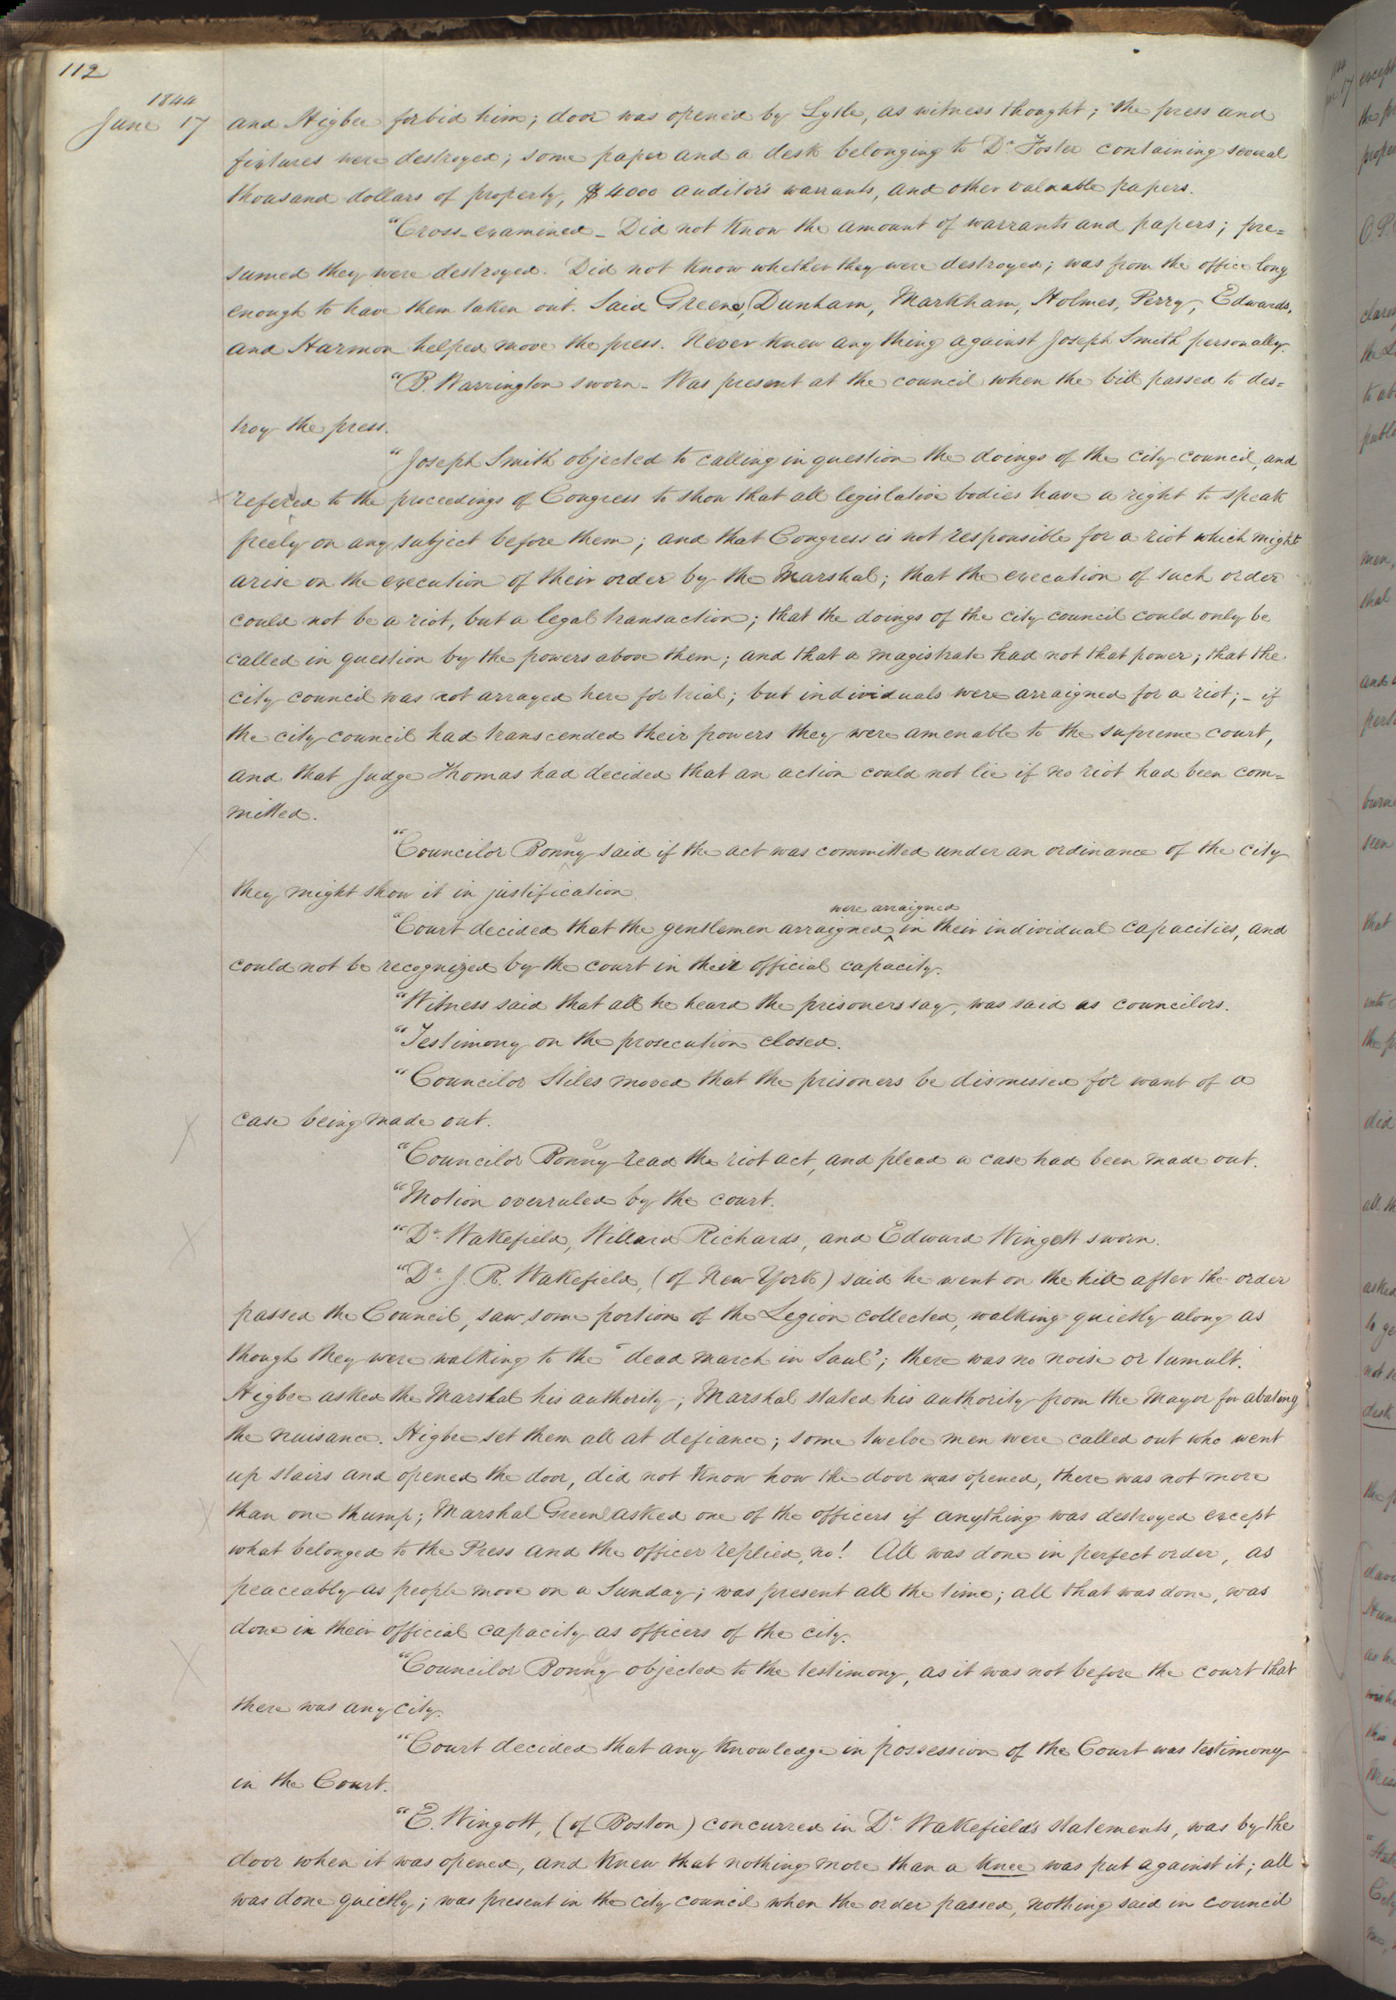 112
1844
June 17 and Higbee forbid him; door was opened by Lytle, as witness thought; the press and
fixtures were destroyed; some paper and a desk belonging to Dr. Foster containing several
thousand dollars of property, $4000 auditor's warrants, and other valuable papers.
"Cross-examined - Did not know the amount of warrants and papers; pre=
sumed they were destroyed. Did not know whether they were destroyed; was from the office long
enough to have them taken out. Said Greene, Dunham, Markham, Holmes, Perry, Edwards,
and Harmon helped move the press. Never knew any thing against Joseph Smith personally.
"B. Warrington sworn - Was present at the council when the bill passed to des=
troy the press.
"Joseph Smith objected to calling in question the doings of the city council, and
refered to the proceedings of Congress to show that all legislative bodies have a right to speak
freely on any subject before them; and that Congress is not responsible for a riot which might
arise on the execution of their order by the Marshal; that the execution of such order
could not be a riot, but a legal transaction; that the doings of the city council could only be
called in question by the powers above them; and that a magistrate had not that power; that the
city council was not arrayed here for trial; but individuals were arraigned for a riot; - if
the city council had transcended their powers they were amenable to the supreme court,
and that Judge Thomas had decided that an action could not lie if no riot had been com=
mitted.
"Councilor Bonny said if the act was committed under an ordinance of the city
they might show it in justification.
were arraigned
"Court decided that the gentlemen arraigned ^ in their individual capacities, and
could not be recognized by the court in their official capacity.
"Witness said that all he heard the prisoners say, was said as councilors.
"Testimony on the prosecution closed.
"Councilor Stiles moved that the prisoners be dismissed for want of a
case being made out.
"Councilor Bonny read the riot act, and plead a case had been made out.
"Motion overruled by the court.
"Dr. Wakefield, Willard Richards, and Edward Wingott sworn.
"Dr. J. R. Wakefield, (of New York) said he went on the hill after the order
passed the Council, saw some portion of the Legion collected, walking quietly along as
though they were walking to the "dead march in Saul"; there was no noise or tumult.
Higbee asked the Marshal his authority; Marshal stated his authority from the Mayor for abating
the nuisance. Higbee set them all at defiance; some twelve men were called out who went
up stairs and opened the door, did not know how the door was opened, there was not more
than one thump; Marshal Green asked one of the officers if anything was destroyed except
what belonged to the Press and the officer replied, no! All was done in perfect order, as
peaceably as people move on a Sunday; was present all the time; all that was done, was
done in their official capacity as officers of the city.
"Councilor Bonny objected to the testimony, as it was not before the court that
there was any city.
"Court decided that any knowledge in possession of the Court was testimony
in the Court.
"E. Wingott, (of Boston) concurred in Dr. Wakefield's statements, was by the
door when it was opened, and knew that nothing more than a knee was put against it; all
was done quietly; was present in the city council when the order passed, nothing said in council